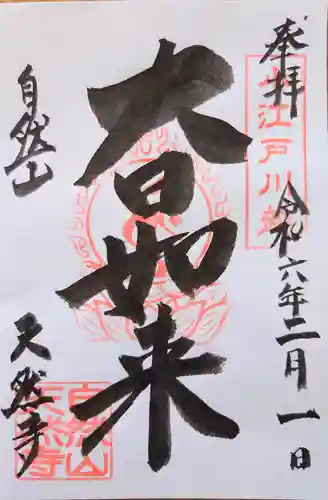 奉拝
令和六年二月一日
大日如来
自然山
天然寺
江戸川
自然山
天然寺